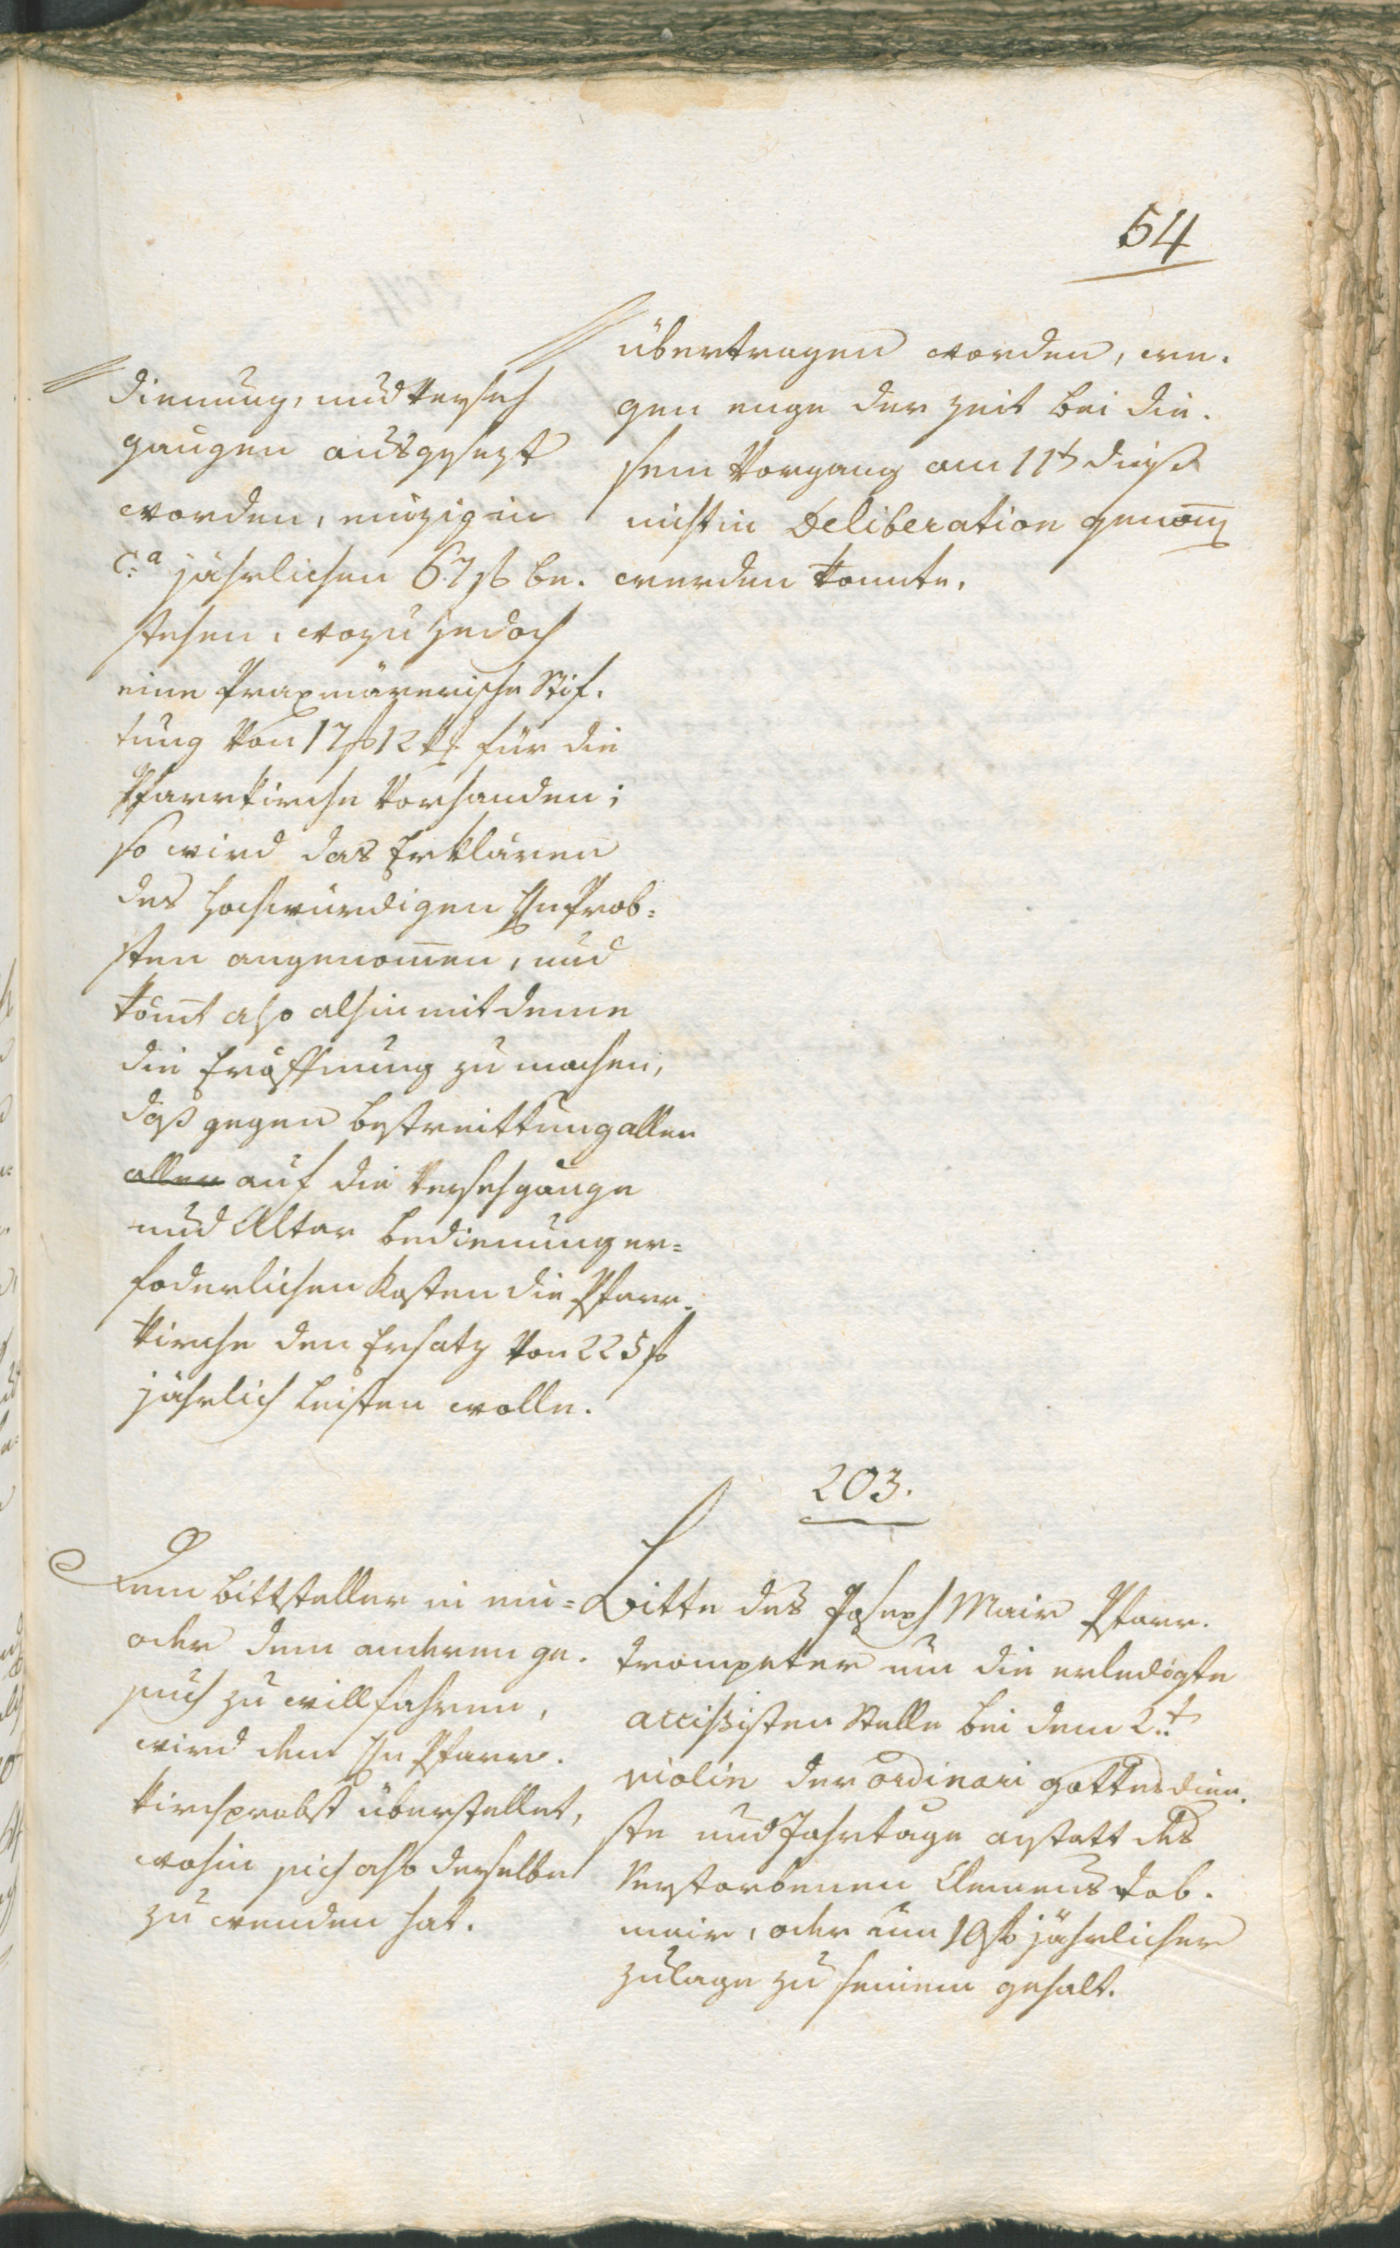 54
dienung, und Verseh
gangen ausgesezt
worden, einzig in
c.a jährlichen 67 f be-
stehen, wozu jedoch
eine Praxmärerische Stif-
tung von 17 f 12 kr für die
Pfarrkirche vorhanden;
so wird das Erklären
des Hochwürdigen Hn Prob=
sten angenom̄en, und
kom̄t also alhin mit deme
die Eröffnung zu machen,
daß gegen bestreittung aller
aller auf die Versehgänge
und Altar bedienung er=
foderlichen Kosten die Pfarr-
kirche den Ersatz von 225 f
jährlich leisten wolle.
übertragen worden, we-
gen enge der Zeit bei die-
sem Vorgang am 11t dieß
nicht in Deliberation genom̄
werden konnte.
203.
Dem Bittsteller in ein=
oder dem anderen ge-
such zu willfahren,
wird dem Hn Pfarr-
kirchprobst überstellet,
wohin sich also derselbe
zu wenden hat.
Bitte des Joseph Mair Pfarr-
trompeter um die erledigte
accißisten Stelle bei dem 2.t
violin der ordinari gottesdien-
ste und Jahrtage anstatt des
Verstorbenen Clemens Dob-
mair, oder um 19 f jährlicher
zulage zu seinem gehalt.